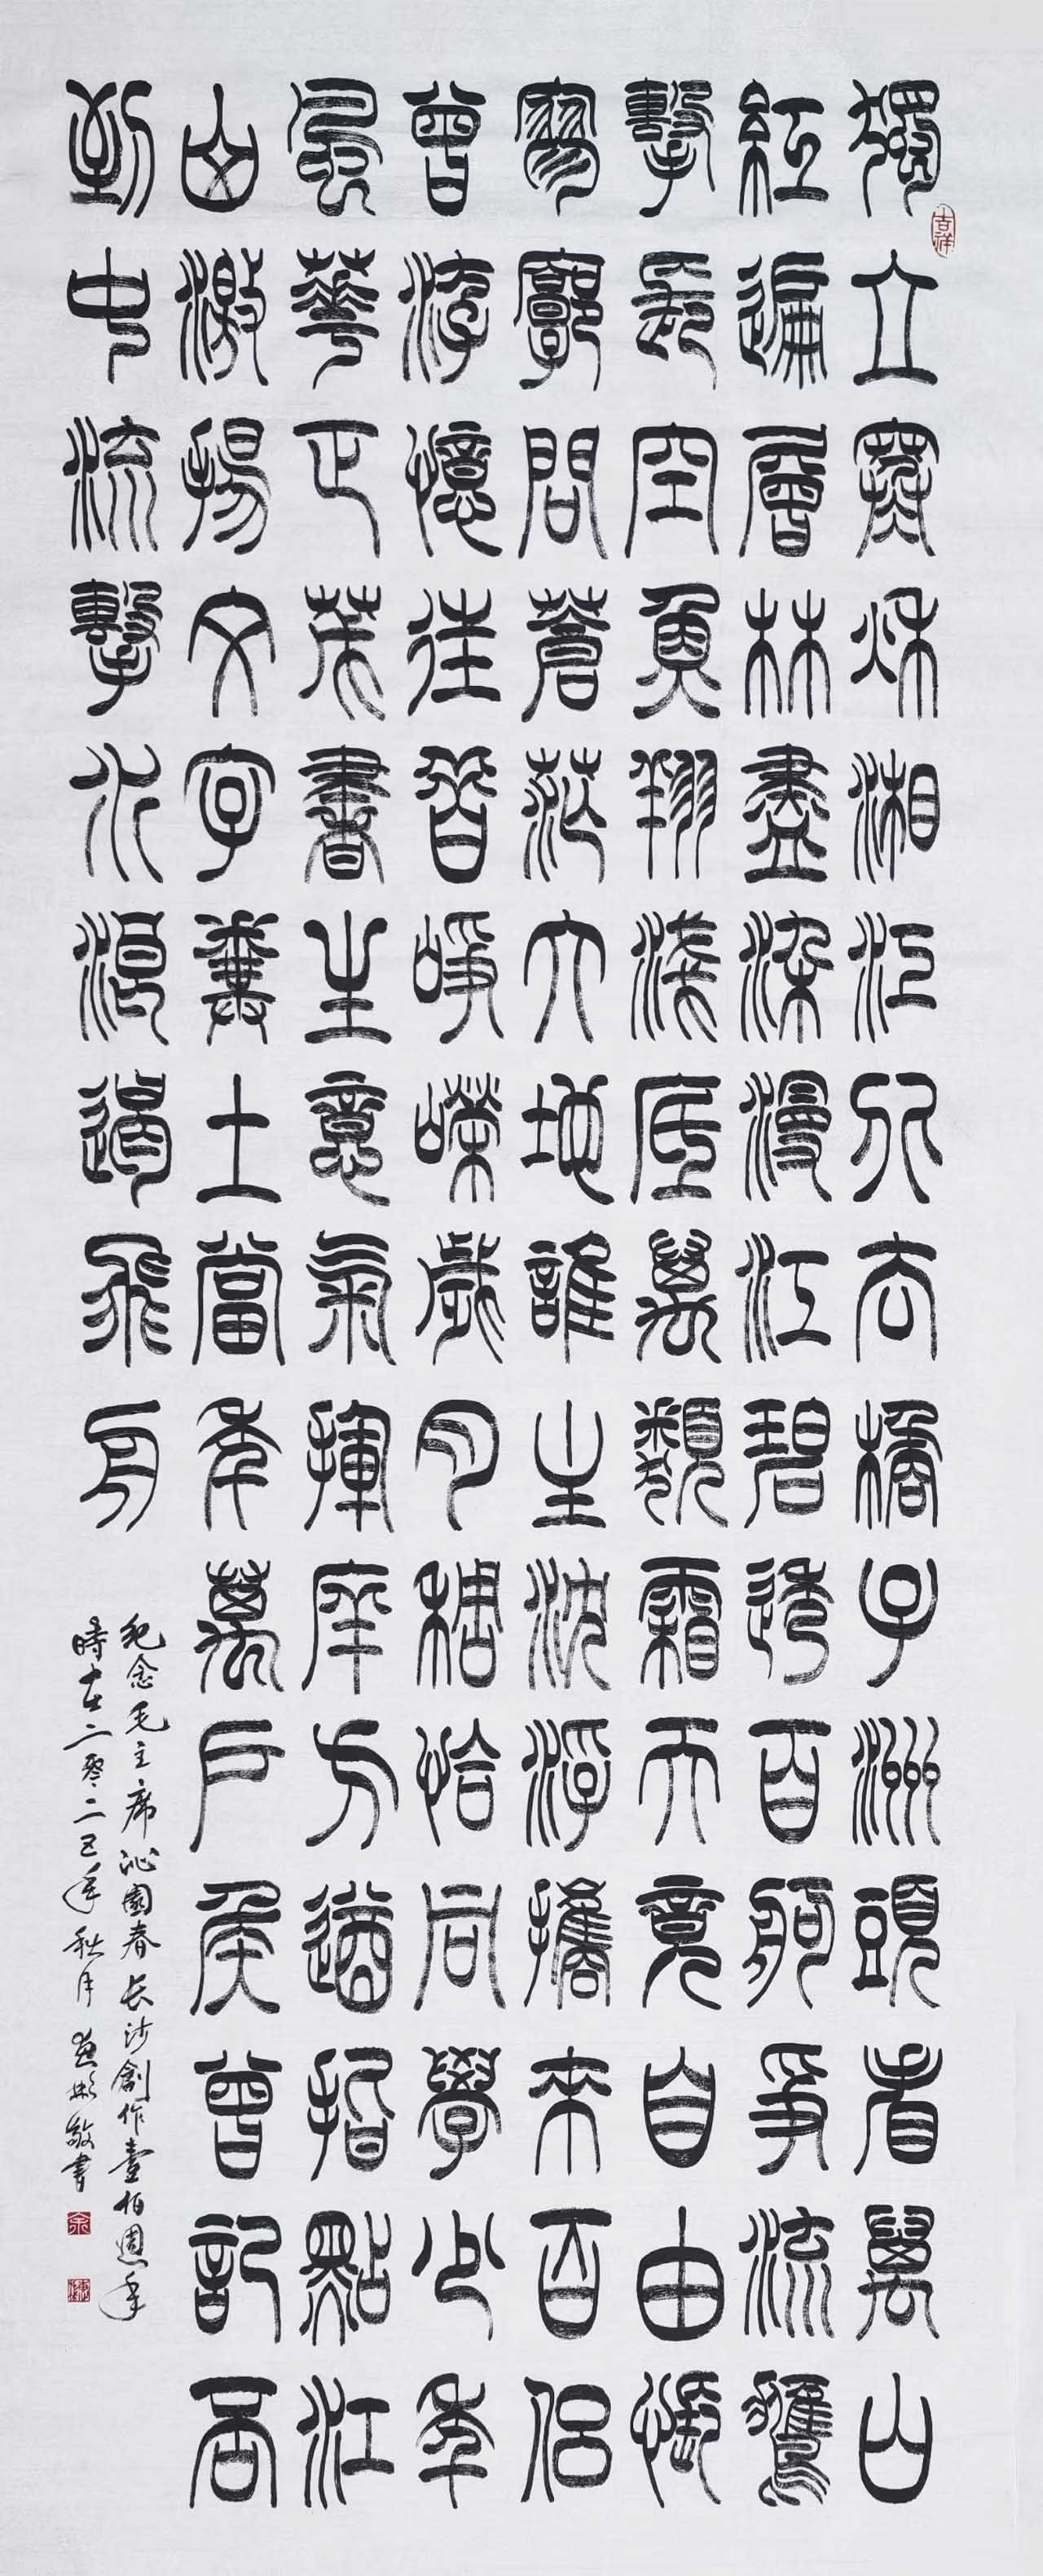 吉祥
獨立寒秋湘江北去橘子洲頭看萬山
紅遍層林盡染漫江碧透百舸爭流鷹
擊長空魚翔淺底萬類霜天競自由悵
寥廓問蒼茫大地誰主沈浮攜來百侶
曾游憶往昔崢嶸歲月稠恰同學少年
風華正茂書生意氣揮斥方遒指點江
山激揚文字糞土當年萬戶侯曾記否
到中流擊水浪遏飛舟
紀念毛主席沁園春长沙創作壹佰週年
時在二零二五年秋月 敬書